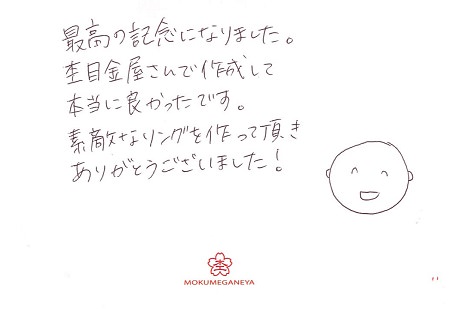 最高の記念になりました。
杢目金屋さんで作成して
本当に良かったです。
素敵なリングを作って頂き
ありがとうございました！
杢
MOKUMEGANEYA